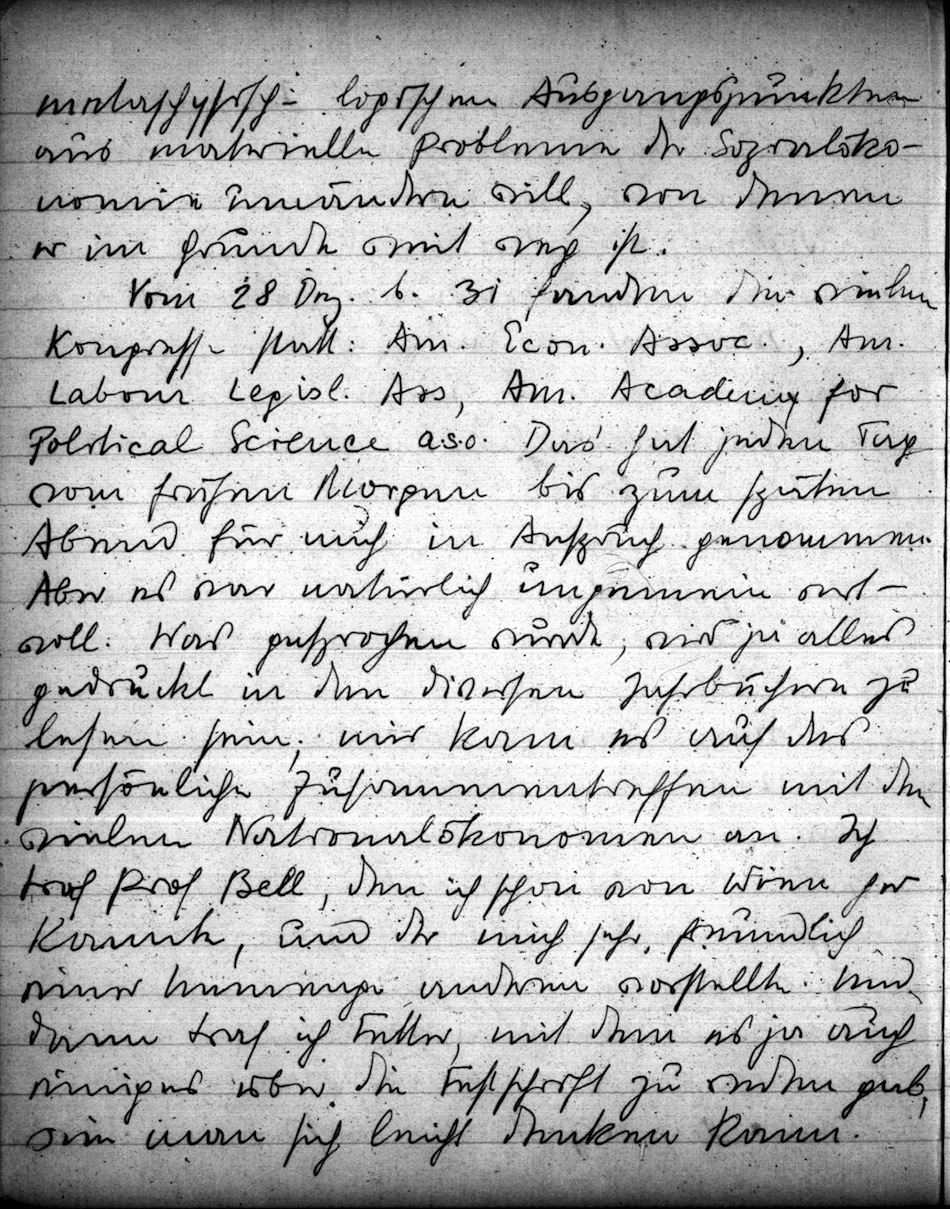 metaphysisch-logischen Ausgangspunkten
aus materielle Probleme der Sozialöko-
nomie umändern will, von denen
er im Grunde weit weg ist.
Vom 28 Dez. b. 31 fanden die vielen
Kongresse statt: Am. Econ. Assoc., Am.
Labour Legisl. Ass, Am. Academy for
Political Science a.s.o. Das hat jeden Tag
vom frühen Morgen bis zum späten
Abend für mich in Anspruch genommen.
Aber es war natürlich ungemein wert-
voll. Was gesprochen wurde, wird ja alles
gedruckt in den diversen Jahrbüchern zu
lesen sein; mir kam es auf das
persönliche Zusammentreffen mit den
vielen Nationalökonomen an. Ich
traf Prof Bell, den ich schon von Wien her
kannte, und der mich sehr freundlich
einer Unmenge anderen vorstellte. Und
dann traf ich Fetter, mit dem es ja auch
einiges über die Festschrift zu reden gab,
wie man sich leicht denken kann.